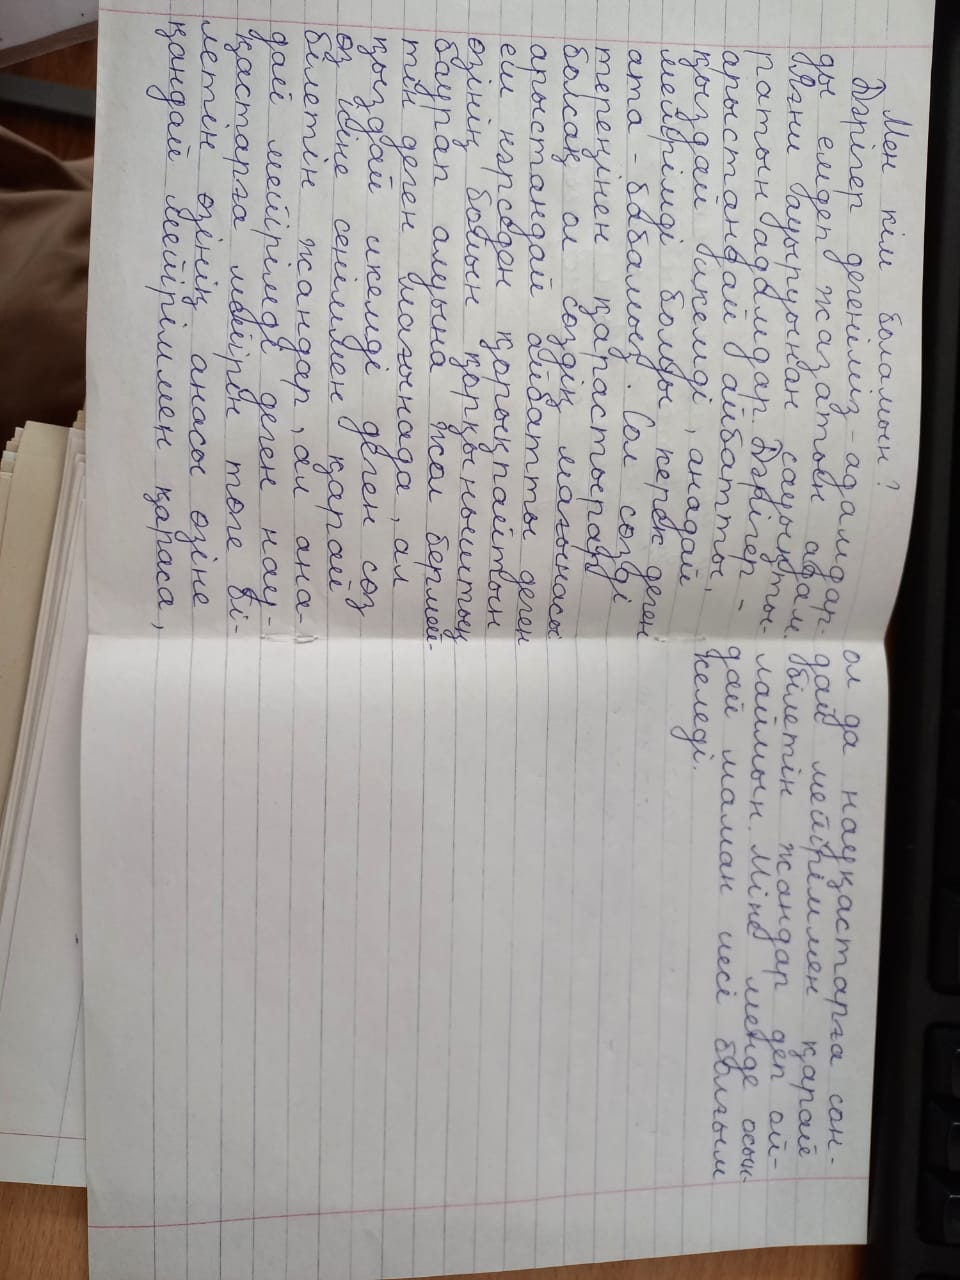 Мен кім боламын?
Дәрігер дегеніміз - адамдар-
ды емдеп жазатын адам.
Яғни ауыруынан сауықты-
ратын адамдар. Дәрігер -
арыстандай айбатты,
қыздай икемді, анадай
мейірімді болуы керек деген
ата - бабамыз. Сол сөзді
тереңінен қарастырар
болсақ ол сөздің мағынасы
арыстандай айбатты деген
еш нәрседен қорықпайтын
өзінің бойын қорқыныштың
баурап алуына жол бермей-
тін деген мағынада, ал
қыздай икемді деген сөз
өз ісіне сеніммен қарай
білетін жандар, ал ана-
дай мейірімді деген нау-
қастарға мейірін төге бі-
летін өзінің анасы өзіне
қандай мейіріммен қараса,
ол да науқастарға сон-
дай мейіріммен қарай
білетін жандар деп ой-
лаймын. Міне менде осын-
дай маман иесі болғым
келеді.